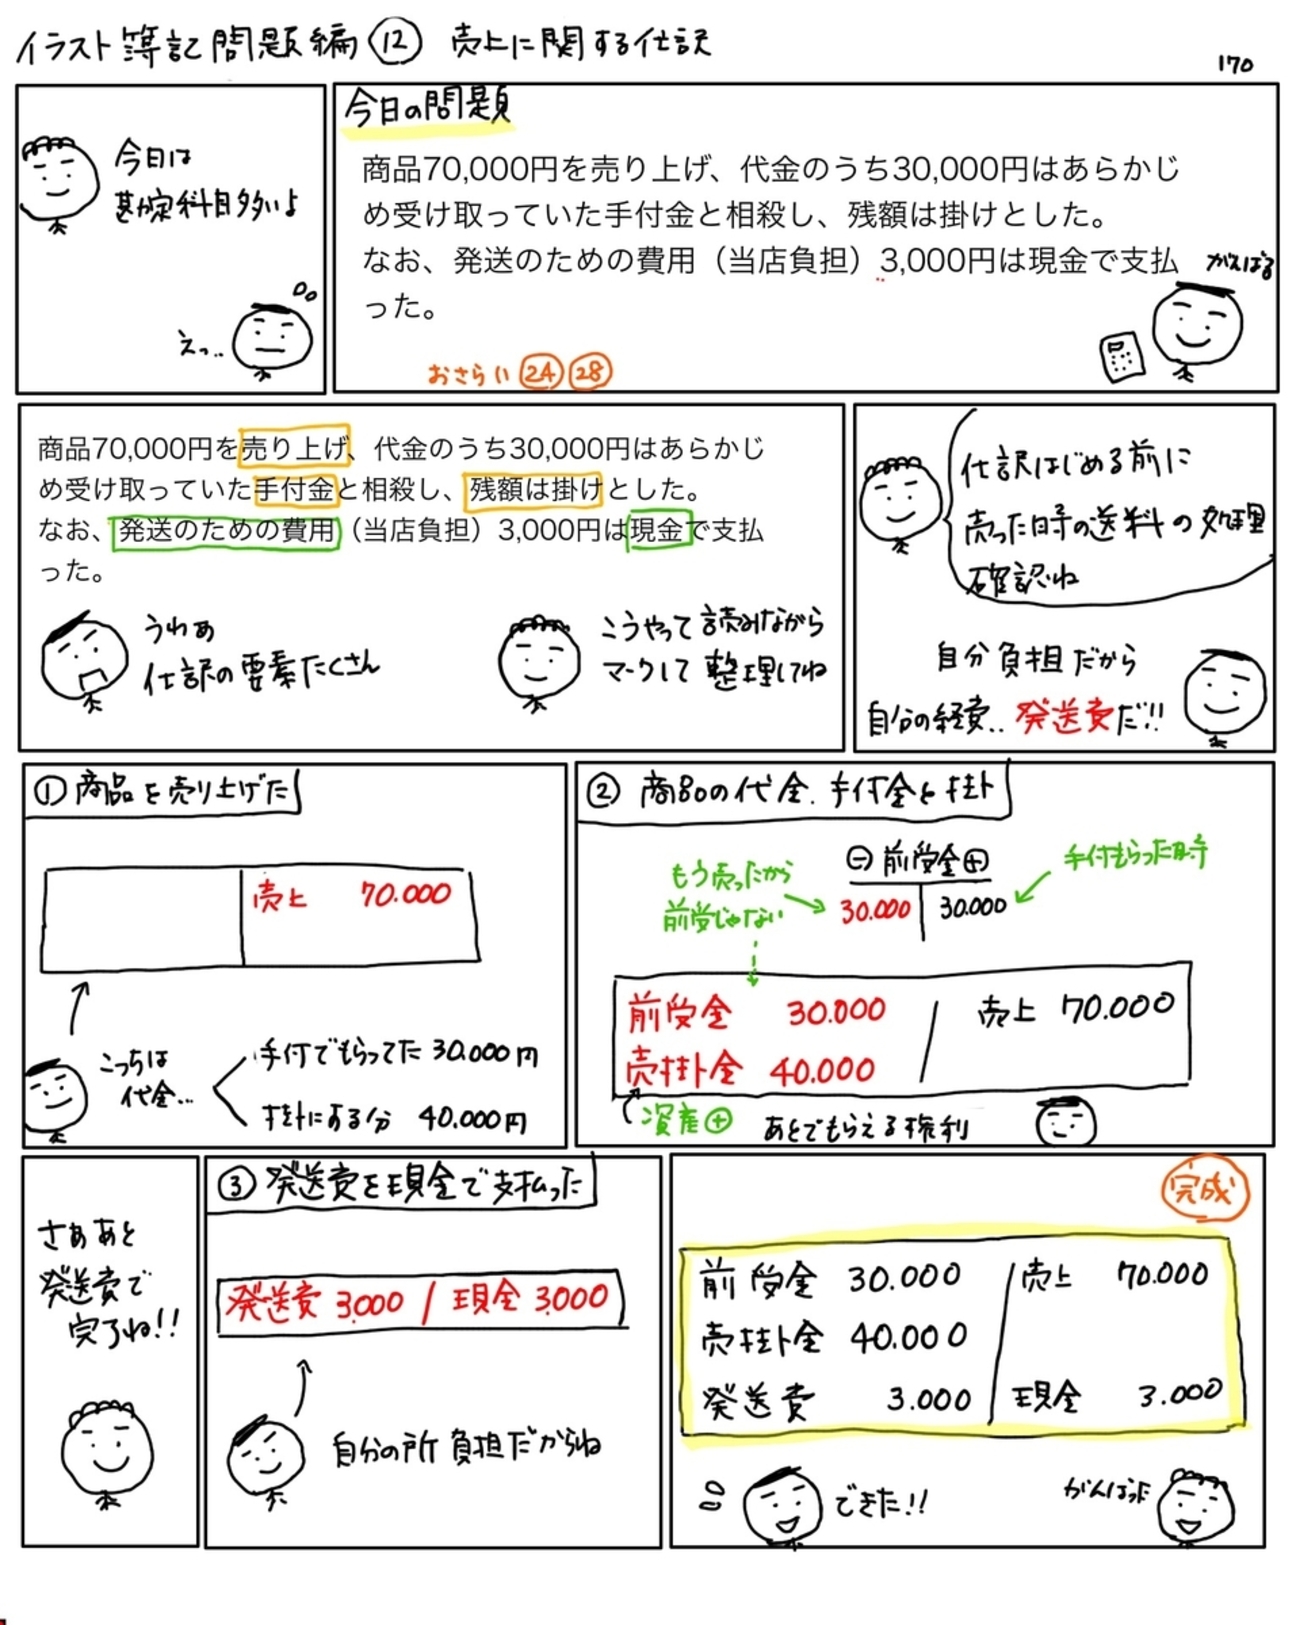 イラスト簿記問題編⑫ 売上に関する仕訳
170
今日は
勘定科目多いよ
えっ..
今日の問題
商品70,000円を売り上げ、代金のうち30,000円はあらかじ
め受け取っていた手付金と相殺し、残額は掛けとした。
なお、発送のための費用（当店負担）3,000円は現金で支払
った。
がんばる
おさらい ㉔ ㉘
商品70,000円を売り上げ、代金のうち30,000円はあらかじ
め受け取っていた手付金と相殺し、残額は掛けとした。
なお、発送のための費用（当店負担）3,000円は現金で支払
った。
うわぁ
仕訳の要素たくさん
こうやって読みながら
マークして整理してね
仕訳はじめる前に
売った時の送料の処理
確認ね
自分負担だから
自分の経費..発送費だ!!
① 商品を売り上げた
売上 70.000
こっちは
代金...
手付でもらってた 30.000円
掛にする分 40.000円
② 商品の代金、手付金と掛
⊖ 前受金 ⊕
30.000 30.000
もう売ったから
前受じゃない
手付もらった時
前受金 30.000 / 売上 70.000
売掛金 40.000
資産⊕
あとでもらえる権利
さああと
発送費で
完了ね!!
③ 発送費を現金で支払った
発送費 3.000 / 現金 3.000
自分の所負担だからね
完成
前受金 30.000 / 売上 70.000
売掛金 40.000
発送費 3.000 現金 3.000
できた!!
がんばった